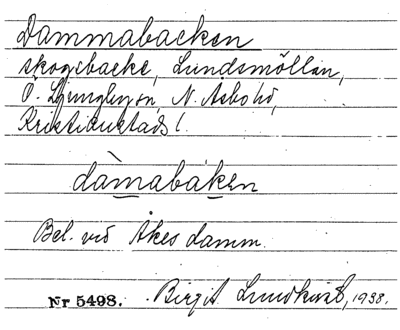 Dammabacken
skogsbacke, Lundsmöllan,
Ö. Ljungby sn, N. Åsbo hd,
Kristianstads l.
dàmabàken
Bel. vid Åkes damm.
Nr 5498. Birgit Lundkvist, 1938.